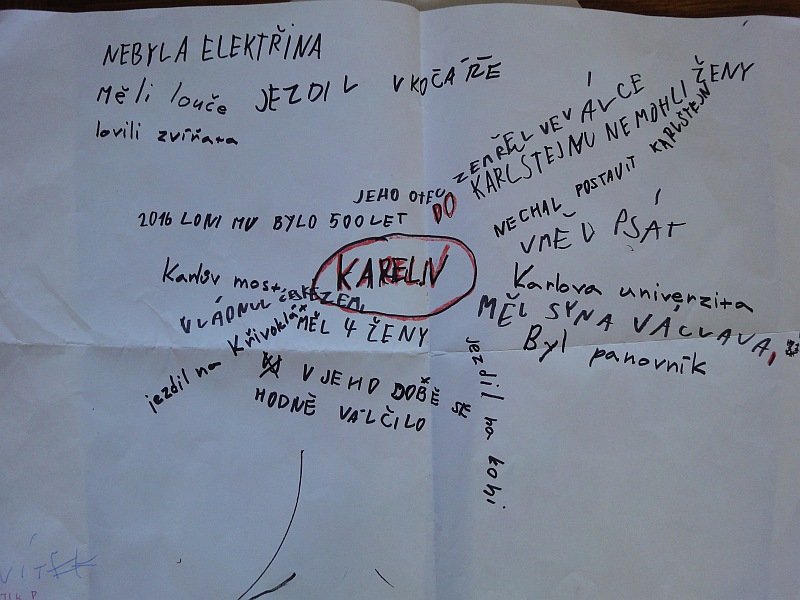 NEBYLA ELEKTŘINA
Měli louče
JEZDIL V KOČÁŘE
lovili zvířata
ZEMŘEL VE VÁLCE
DO KARLŠTEJNU NEMOHLI ŽENY
JEHO OTEC
NECHAL POSTAVIT KARLŠTEJN
2016 LONI MU BYLO 500 LET
UMĚL PSÁT
KAREL IV
Karlův most
Karlova univerzita
VLÁDNUL ČESKÉ ZEMI
MĚL SYNA VÁCLAVA,
MĚL 4 ŽENY
Byl panovník
jezdil na Křivoklát
V JEHO DOBĚ SE
HODNĚ VÁLČILO
jezdil na koni
VÍTEK